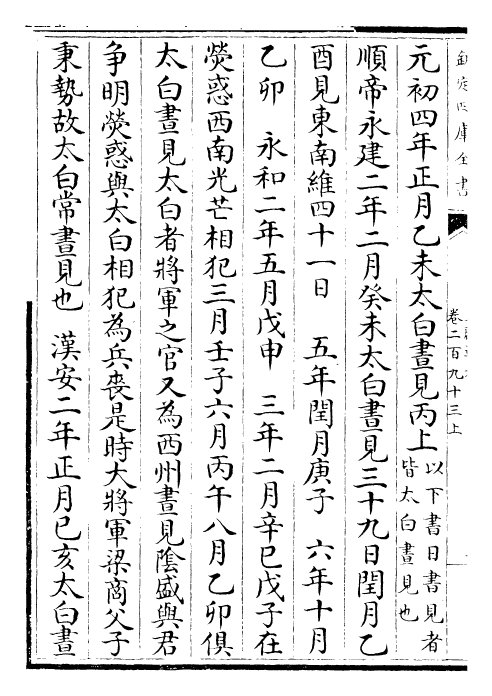 欽定四庫全書
卷二百九十三上
元初四年正月乙未太白晝見丙上以下書日書見者皆太白晝見也
順帝永建二年二月癸未太白晝見三十九日閏月乙
酉見東南維四十一日　五年閏月庚子　六年十月
乙卯　永和二年五月戊申　三年二月辛巳戊子在
熒惑西南光芒相犯三月壬子六月丙午八月乙卯俱
太白晝見太白者將軍之官又為西州晝見隂盛與君
争明熒惑與太白相犯為兵喪是時大將軍梁商父子
秉勢故太白常晝見也　漢安二年正月己亥太白晝